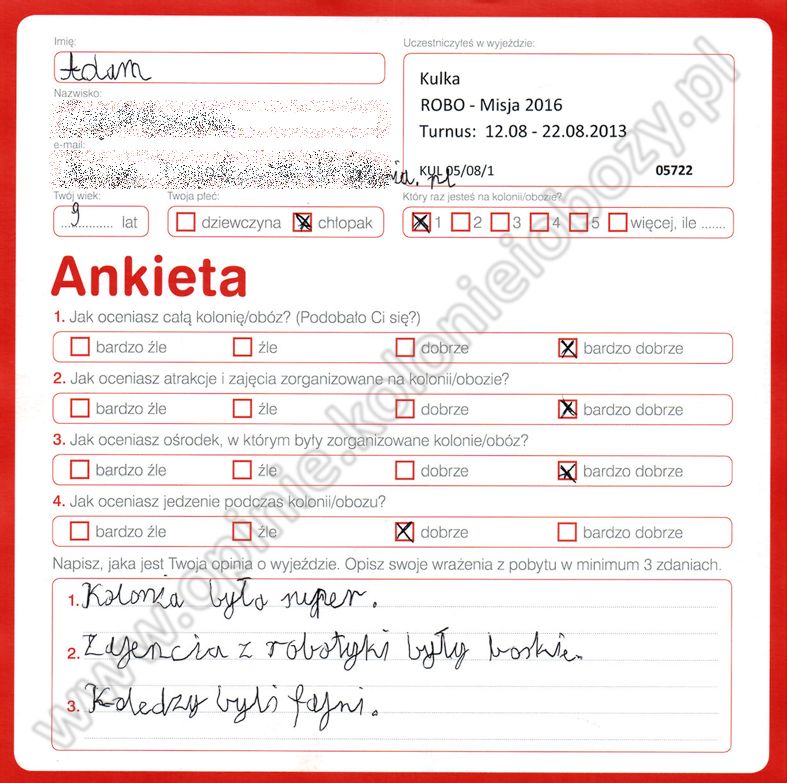 Imię:
Uczestniczyłeś w wyjeździe:
Adam
Kulka
ROBO - Misja 2016
Turnus: 12.08 - 22.08.2013
KUL 05/08/1
05722
Nazwisko:
e-mail:
.pl
Twój wiek:
Twoja płeć:
Który raz jesteś na kolonii/obozie?
9 lat
dziewczyna chłopak
1 2 3 4 5 więcej, ile .......
Ankieta
1. Jak oceniasz całą kolonię/obóz? (Podobało Ci się?)
bardzo źle źle dobrze bardzo dobrze
2. Jak oceniasz atrakcje i zajęcia zorganizowane na kolonii/obozie?
bardzo źle źle dobrze bardzo dobrze
3. Jak oceniasz ośrodek, w którym były zorganizowane kolonie/obóz?
bardzo źle źle dobrze bardzo dobrze
4. Jak oceniasz jedzenie podczas kolonii/obozu?
bardzo źle źle dobrze bardzo dobrze
Napisz, jaka jest Twoja opinia o wyjeździe. Opisz swoje wrażenia z pobytu w minimum 3 zdaniach.
1. Kolonia była super.
2. Zajencia z robotyki były boskie.
3. Koledzy byli fajni.
www.opinie.kolonieiobozy.pl